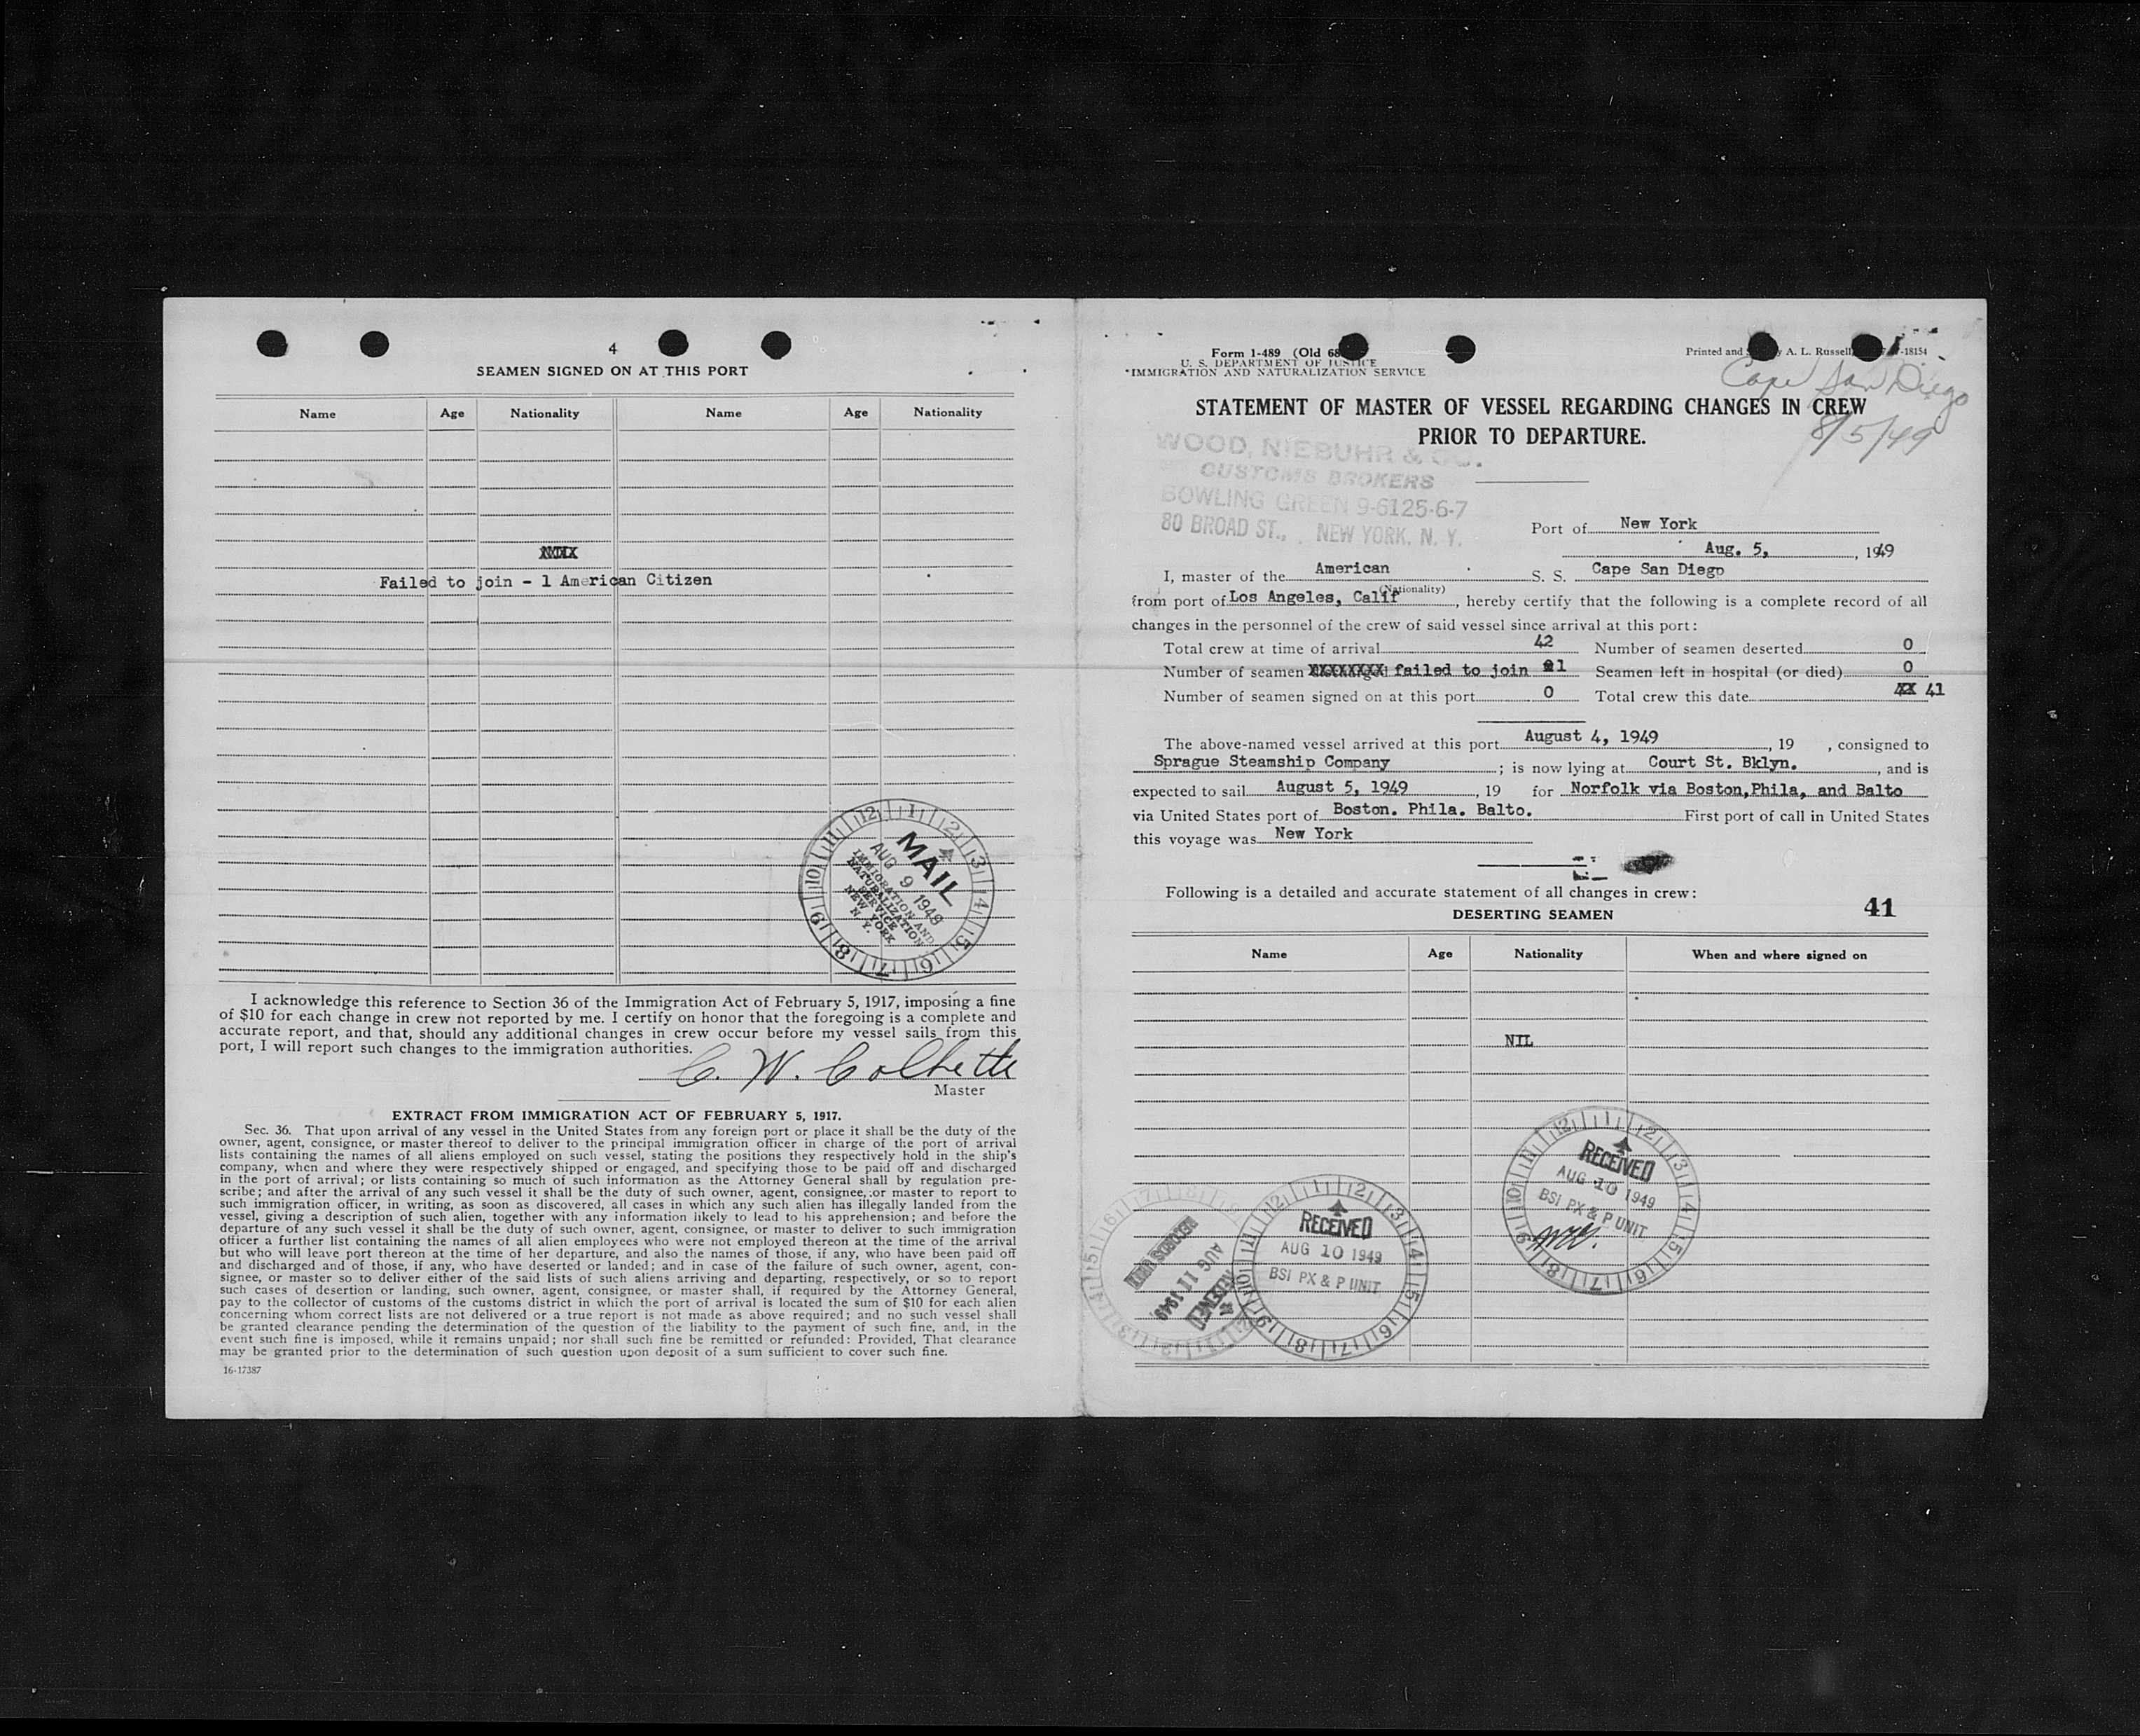 4
SEAMEN SIGNED ON AT THIS PORT
Name Age Nationality Name Age Nationality
Failed to join - 1 American Citizen
MAIL
AUG 9 1949
IMMIGRATION AND
NATURALIZATION
SERVICE
NEW YORK
N. Y.
I acknowledge this reference to Section 36 of the Immigration Act of February 5, 1917, imposing a fine
of $10 for each change in crew not reported by me. I certify on honor that the foregoing is a complete and
accurate report, and that, should any additional changes in crew occur before my vessel sails from this
port, I will report such changes to the immigration authorities.
C. W. Colbeth
Master
EXTRACT FROM IMMIGRATION ACT OF FEBRUARY 5, 1917.
Sec. 36. That upon arrival of any vessel in the United States from any foreign port or place it shall be the duty of the
owner, agent, consignee, or master thereof to deliver to the principal immigration officer in charge of the port of arrival
lists containing the names of all aliens employed on such vessel, stating the positions they respectively hold in the ship's
company, when and where they were respectively shipped or engaged, and specifying those to be paid off and discharged
in the port of arrival; or lists containing so much of such information as the Attorney General shall by regulation pre-
scribe; and after the arrival of any such vessel it shall be the duty of such owner, agent, consignee, or master to report to
such immigration officer, in writing, as soon as discovered, all cases in which any such alien has illegally landed from the
vessel, giving a description of such alien, together with any information likely to lead to his apprehension; and before the
departure of any such vessel it shall be the duty of such owner, agent, consignee, or master to deliver to such immigration
officer a further list containing the names of all alien employees who were not employed thereon at the time of the arrival
but who will leave port thereon at the time of her departure, and also the names of those, if any, who have been paid off
and discharged and of those, if any, who have deserted or landed; and in case of the failure of such owner, agent, con-
signee, or master so to deliver either of the said lists of such aliens arriving and departing, respectively, or so to report
such cases of desertion or landing, such owner, agent, consignee, or master shall, if required by the Attorney General,
pay to the collector of customs of the customs district in which the port of arrival is located the sum of $10 for each alien
concerning whom correct lists are not delivered or a true report is not made as above required; and no such vessel shall
be granted clearance pending the determination of the question of the liability to the payment of such fine, and, in the
event such fine is imposed, while it remains unpaid; nor shall such fine be remitted or refunded: Provided, That clearance
may be granted prior to the determination of such question upon deposit of a sum sufficient to cover such fine.
16-17387
Form 1-489 (Old 68
U. S. DEPARTMENT OF JUSTICE
IMMIGRATION AND NATURALIZATION SERVICE
Printed and y A. L. Russell, -18154
Cape San Diego
8/5/49
STATEMENT OF MASTER OF VESSEL REGARDING CHANGES IN CREW
PRIOR TO DEPARTURE.
WOOD, NIEBUHR & CO.
CUSTOMS BROKERS
BOWLING GREEN 9-6125-6-7
80 BROAD ST., NEW YORK, N. Y.
Port of New York
Aug. 5, , 1949
I, master of the American S. S. Cape San Diego
(Nationality)
from port of Los Angeles, Calif , hereby certify that the following is a complete record of all
changes in the personnel of the crew of said vessel since arrival at this port:
Total crew at time of arrival 42 Number of seamen deserted 0
Number of seamen failed to join 1 Seamen left in hospital (or died) 0
Number of seamen signed on at this port 0 Total crew this date 41
The above-named vessel arrived at this port August 4, 1949 , 19 , consigned to
Sprague Steamship Company ; is now lying at Court St. Bklyn. , and is
expected to sail August 5, 1949 , 19 for Norfolk via Boston,Phila, and Balto
via United States port of Boston. Phila. Balto. First port of call in United States
this voyage was New York
Following is a detailed and accurate statement of all changes in crew:
DESERTING SEAMEN 41
Name Age Nationality When and where signed on
NIL
RECEIVED
AUG 10 1949
BSI PX & P UNIT
RECEIVED
AUG 10 1949
BSI PX & P UNIT
AUG 11 1949
RECEIVED